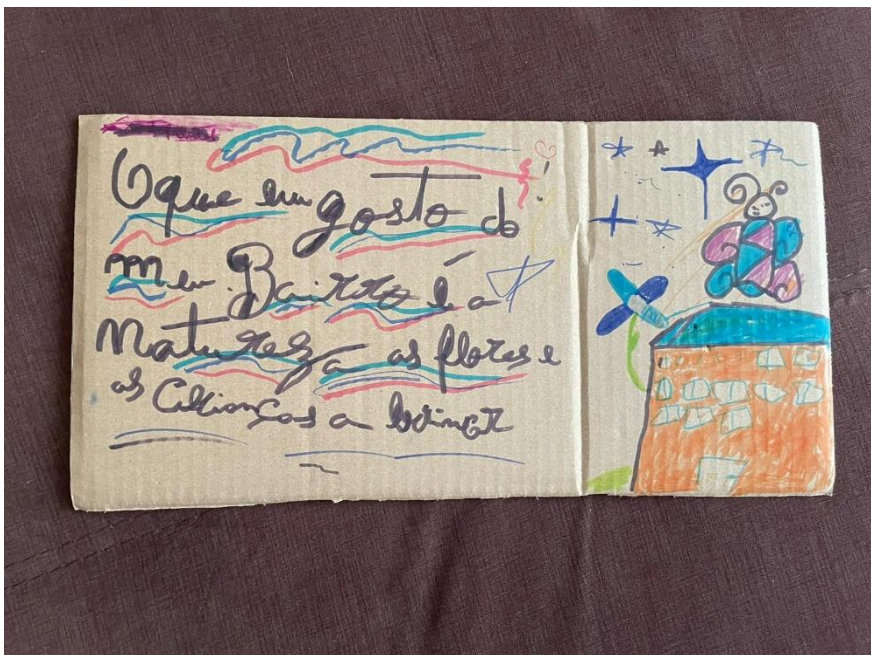 O que eu gosto do
meu Bairro é a
Natureza as flores e
as Crianças a brincar